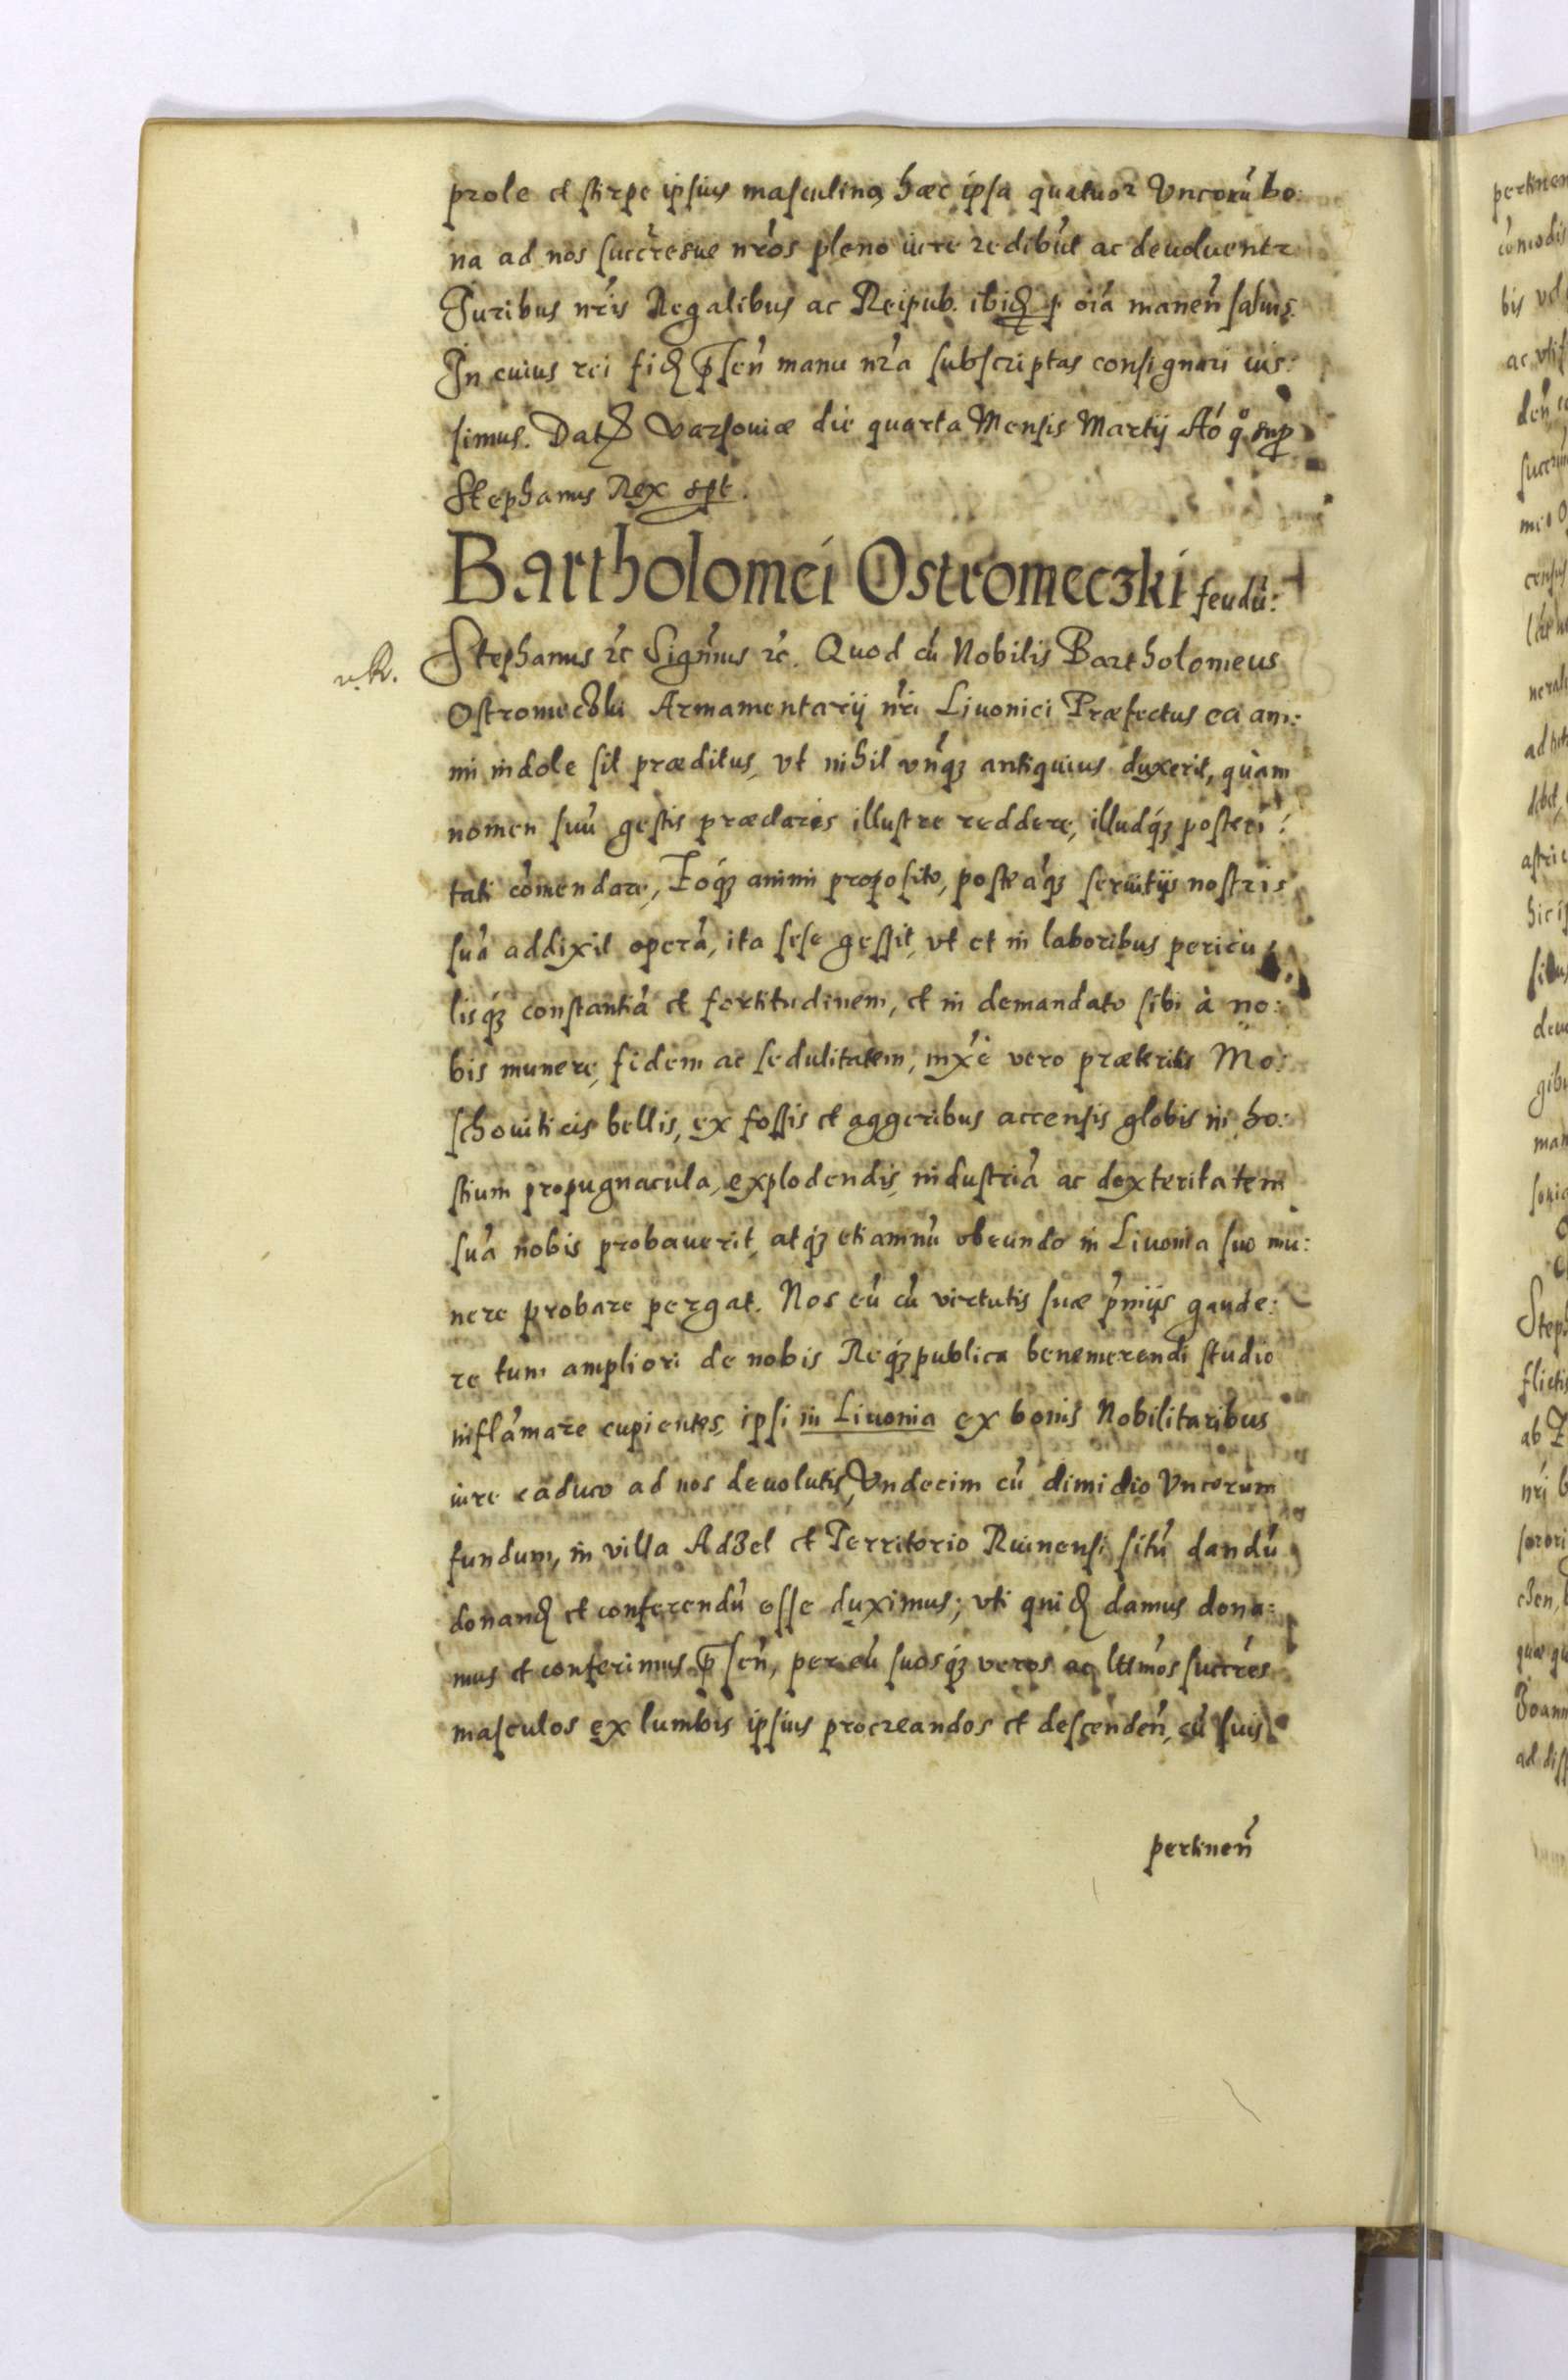 prole et stirpe ipsius masculina, hæc ipsa quatuor Vncorũ bo:
na ad nos succr̃esue nr̃os pleno iure redibũt ac deuoluentr
Juribus nr̃is Regalibus ac Reipub. ibid p oĩa manen̄ saluis.
In cuius rei fid p̄sen̄ manu nr̃a subscriptas consignari ius:
simus. Dat Varsouiæ die quarta Mensis Martij Aó qº sup
Stephanus Rex spt.
Bartholomei Ostromeczki feudũ:
Stephanus ꝛc̃ Sign̄mus ꝛc̃. Quod cũ Nobilis Bartholomeus
Ostromeczki Armamentarij nr̃i Liuonici Præfectus ea ani:
mi indole sit præditus, vt nihil vnq̃ꝫ antiquius duxerit, quàm
nomen suũ gestis præclaris illustre reddere, illudq́ꝫ posteri:
tati cõmendare, Eoq́ꝫ animi proposito, posteaq̃ꝫ seruitijs nostris
suã addixit operã, ita sese gessit, vt et in laboribus pericu
lisq́ꝫ constantiã et fortitudinem, et in demandato sibi à no:
bis munere, fidem ac sedulitatem, mx̃e vero præteritis Mo:
schouiticis bellis, ex fossis et aggeribus accensis globis in ho:
stium propugnacula, explodendis, industriã ac dexteritatem
suã nobis probauerit, atq́ꝫ etiamnũ obeundo in Liuonia suo mu:
nere probare pergat. Nos eũ cũ virtutis suæ p̃mijs gaude:
re tum ampliori de nobis Req́ꝫpublica benemerendi studio
inflãmare cupientes, ipsi in Liuonia ex bonis Nobilitaribus
iure caduco ad nos deuolutis, Vndecim cũ dimidio Vncorum
fundum, in villa Adzel et Territorio Ruinensi sitũ dandũ
donand et conferendũ esse duximus; vti quid damus dona:
mus et conferimus p̄sen̄, per eũ suosq́ꝫ veros ac ltt̃imos succr̃es
masculos ex lumbis ipsius procreandos et descenden̄, cũ suis
pertinen̄